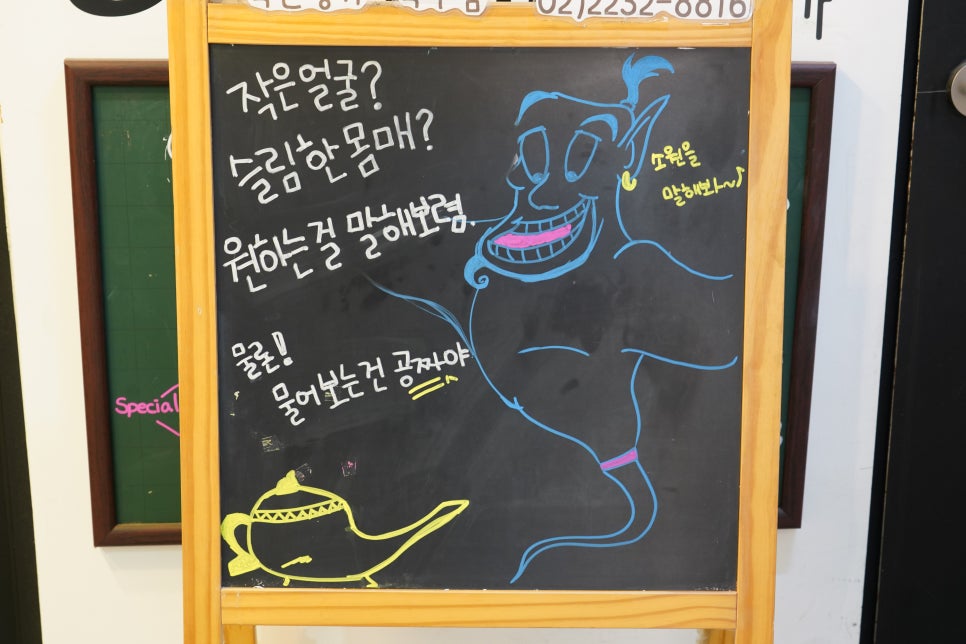 02)2232-8816
작은얼굴?
슬림한몸매?
원하는걸 말해보렴.
소원을
말해봐~♪
물론!
물어보는건 공짜야^^
Special